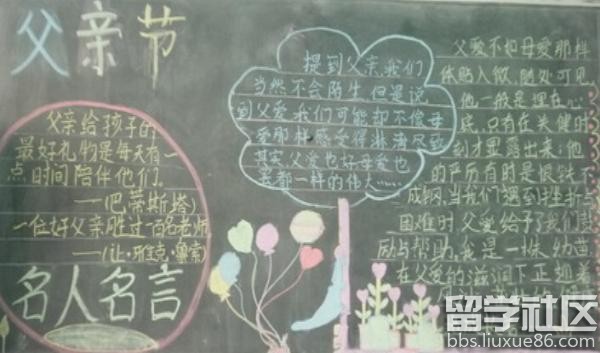 父亲节
父亲给孩子的
最好礼物是每天有一
点时间陪伴他们。
——(巴蒂斯塔)
一位好父亲胜过一百名老师
——(让·雅克·鲁索)
名人名言
提到父亲,我们
当然不会陌生但是说
到父爱我们可能却不像母
爱那样感受得淋漓尽致
其实父爱也好母爱也
罢都一样的伟大……
父爱不如母爱那样
体贴入微,随处可见,
他一般是埋在心
底,只有在关键时
刻才显露出来:他
的严厉有时是恨铁不
成钢,当我们遇到挫折与
困难时父爱给予了我们
励与帮助,我是一株幼苗
在父爱的滋润下正
留学社区
bbs.liuxue86.com